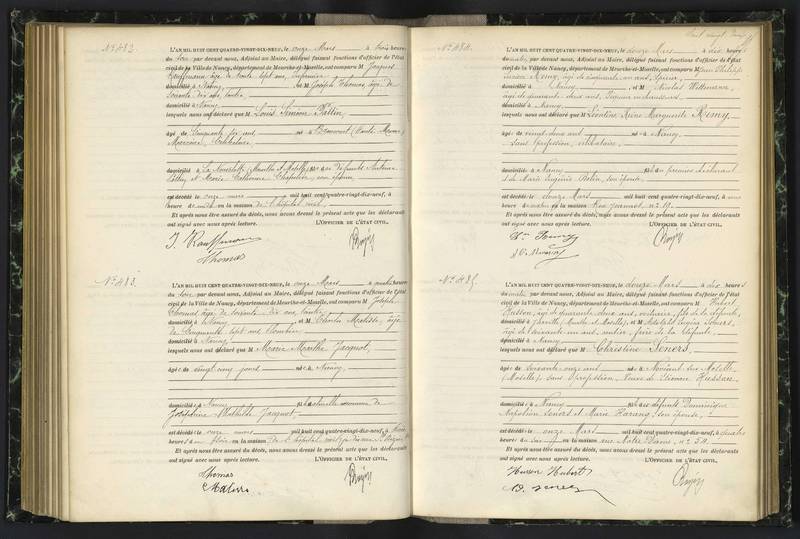 N° 482.
L'AN MIL HUIT CENT QUATRE-VINGT-DIX-NEUF, le onze Mars à trois heures
du soir par devant nous, Adjoint au Maire, délégué faisant fonctions d'officier de l'état
civil de la Ville de Nancy, département de Meurthe-et-Moselle, ont comparu M Jacques
Kauffmann âgé de
domicilié à Nancy et M Joseph Thomas, âgé de
soixante dix ans,
domicilié à Nancy
lesquels nous ont déclaré que M Louis Simon
âgé de Cinquante six ans né à
Célibataire
domicilié à (Meurthe et Moselle) de défunts
et Marie Catherine son épouse
est décédé le onze mars mil huit cent quatre-vingt-dix-neuf, à
heure de en la maison de l'hôpital civil
Et après nous être assuré du décès, nous avons dressé le présent acte que les déclarants
ont signé avec nous après lecture. L'OFFICIER DE L'ÉTAT CIVIL,
J. Kauffmann
Thomas
N° 483.
L'AN MIL HUIT CENT QUATRE-VINGT-DIX-NEUF, le onze Mars à quatre heures
du soir par devant nous, Adjoint au Maire, délégué faisant fonctions d'officier de l'état
civil de la Ville de Nancy, département de Meurthe-et-Moselle, ont comparu M Joseph
Thomas âgé de soixante dix ans
domicilié à Nancy et M âgé
de Cinquante sept ans
domicilié à Nancy
lesquels nous ont déclaré que M Marie Marthe Jacquot
âgé de vingt cinq jours né à Nancy
domicilié à Nancy
Joséphine Mathilde Jacquot
est décédé le onze mars mil huit cent quatre-vingt-dix-neuf, à
heures en la maison de l'hôpital civil
Et après nous être assuré du décès, nous avons dressé le présent acte que les déclarants
ont signé avec nous après lecture. L'OFFICIER DE L'ÉTAT CIVIL,
Thomas
N° 484.
L'AN MIL HUIT CENT QUATRE-VINGT-DIX-NEUF, le douze Mars à dix heures
du matin par devant nous, Adjoint au Maire, délégué faisant fonctions d'officier de l'état
civil de la Ville de Nancy, département de Meurthe-et-Moselle, ont comparu M Jean Philippe
Remy, âgé de cinquante un ans,
domicilié à Nancy et M Nicolas Wittmann,
âgé de quarante deux ans,
domicilié à Nancy
lesquels nous ont déclaré que M Léontine Reine Marguerite Remy
âgé de vingt deux ans né à Nancy
sans profession, célibataire
domicilié à Nancy du premier déclarant
et de Marie Eugénie son épouse
est décédé le douze Mars mil huit cent quatre-vingt-dix-neuf, à une
heure du matin en la maison Rue Jeannot, n° 19
Et après nous être assuré du décès, nous avons dressé le présent acte que les déclarants
ont signé avec nous après lecture. L'OFFICIER DE L'ÉTAT CIVIL,
N° 485.
L'AN MIL HUIT CENT QUATRE-VINGT-DIX-NEUF, le douze Mars à dix heures
du matin, par devant nous, Adjoint au Maire, délégué faisant fonctions d'officier de l'état
civil de la Ville de Nancy, département de Meurthe-et-Moselle, ont comparu M Hubert
Husson, âgé de quarante deux ans, fils de la défunte,
domicilié à Jarville (Meurthe et Moselle), et M Adolphe Eugène Seners,
âgé de soixante ans, frère de la défunte
domicilié à Nancy
lesquels nous ont déclaré que M Christine Seners
âgé de soixante onze ans né à Novéant sur Moselle
(Moselle), sans profession, Veuve de Husson
domicilié à Nancy de défunts Dominique
Napoléon Seners et Marie Harang, son épouse,
est décédé le onze Mars mil huit cent quatre-vingt-dix-neuf, à quatre
heures du soir en la maison rue Notre Dame, n° 54
Et après nous être assuré du décès, nous avons dressé le présent acte que les déclarants
ont signé avec nous après lecture. L'OFFICIER DE L'ÉTAT CIVIL,
Husson Hubert